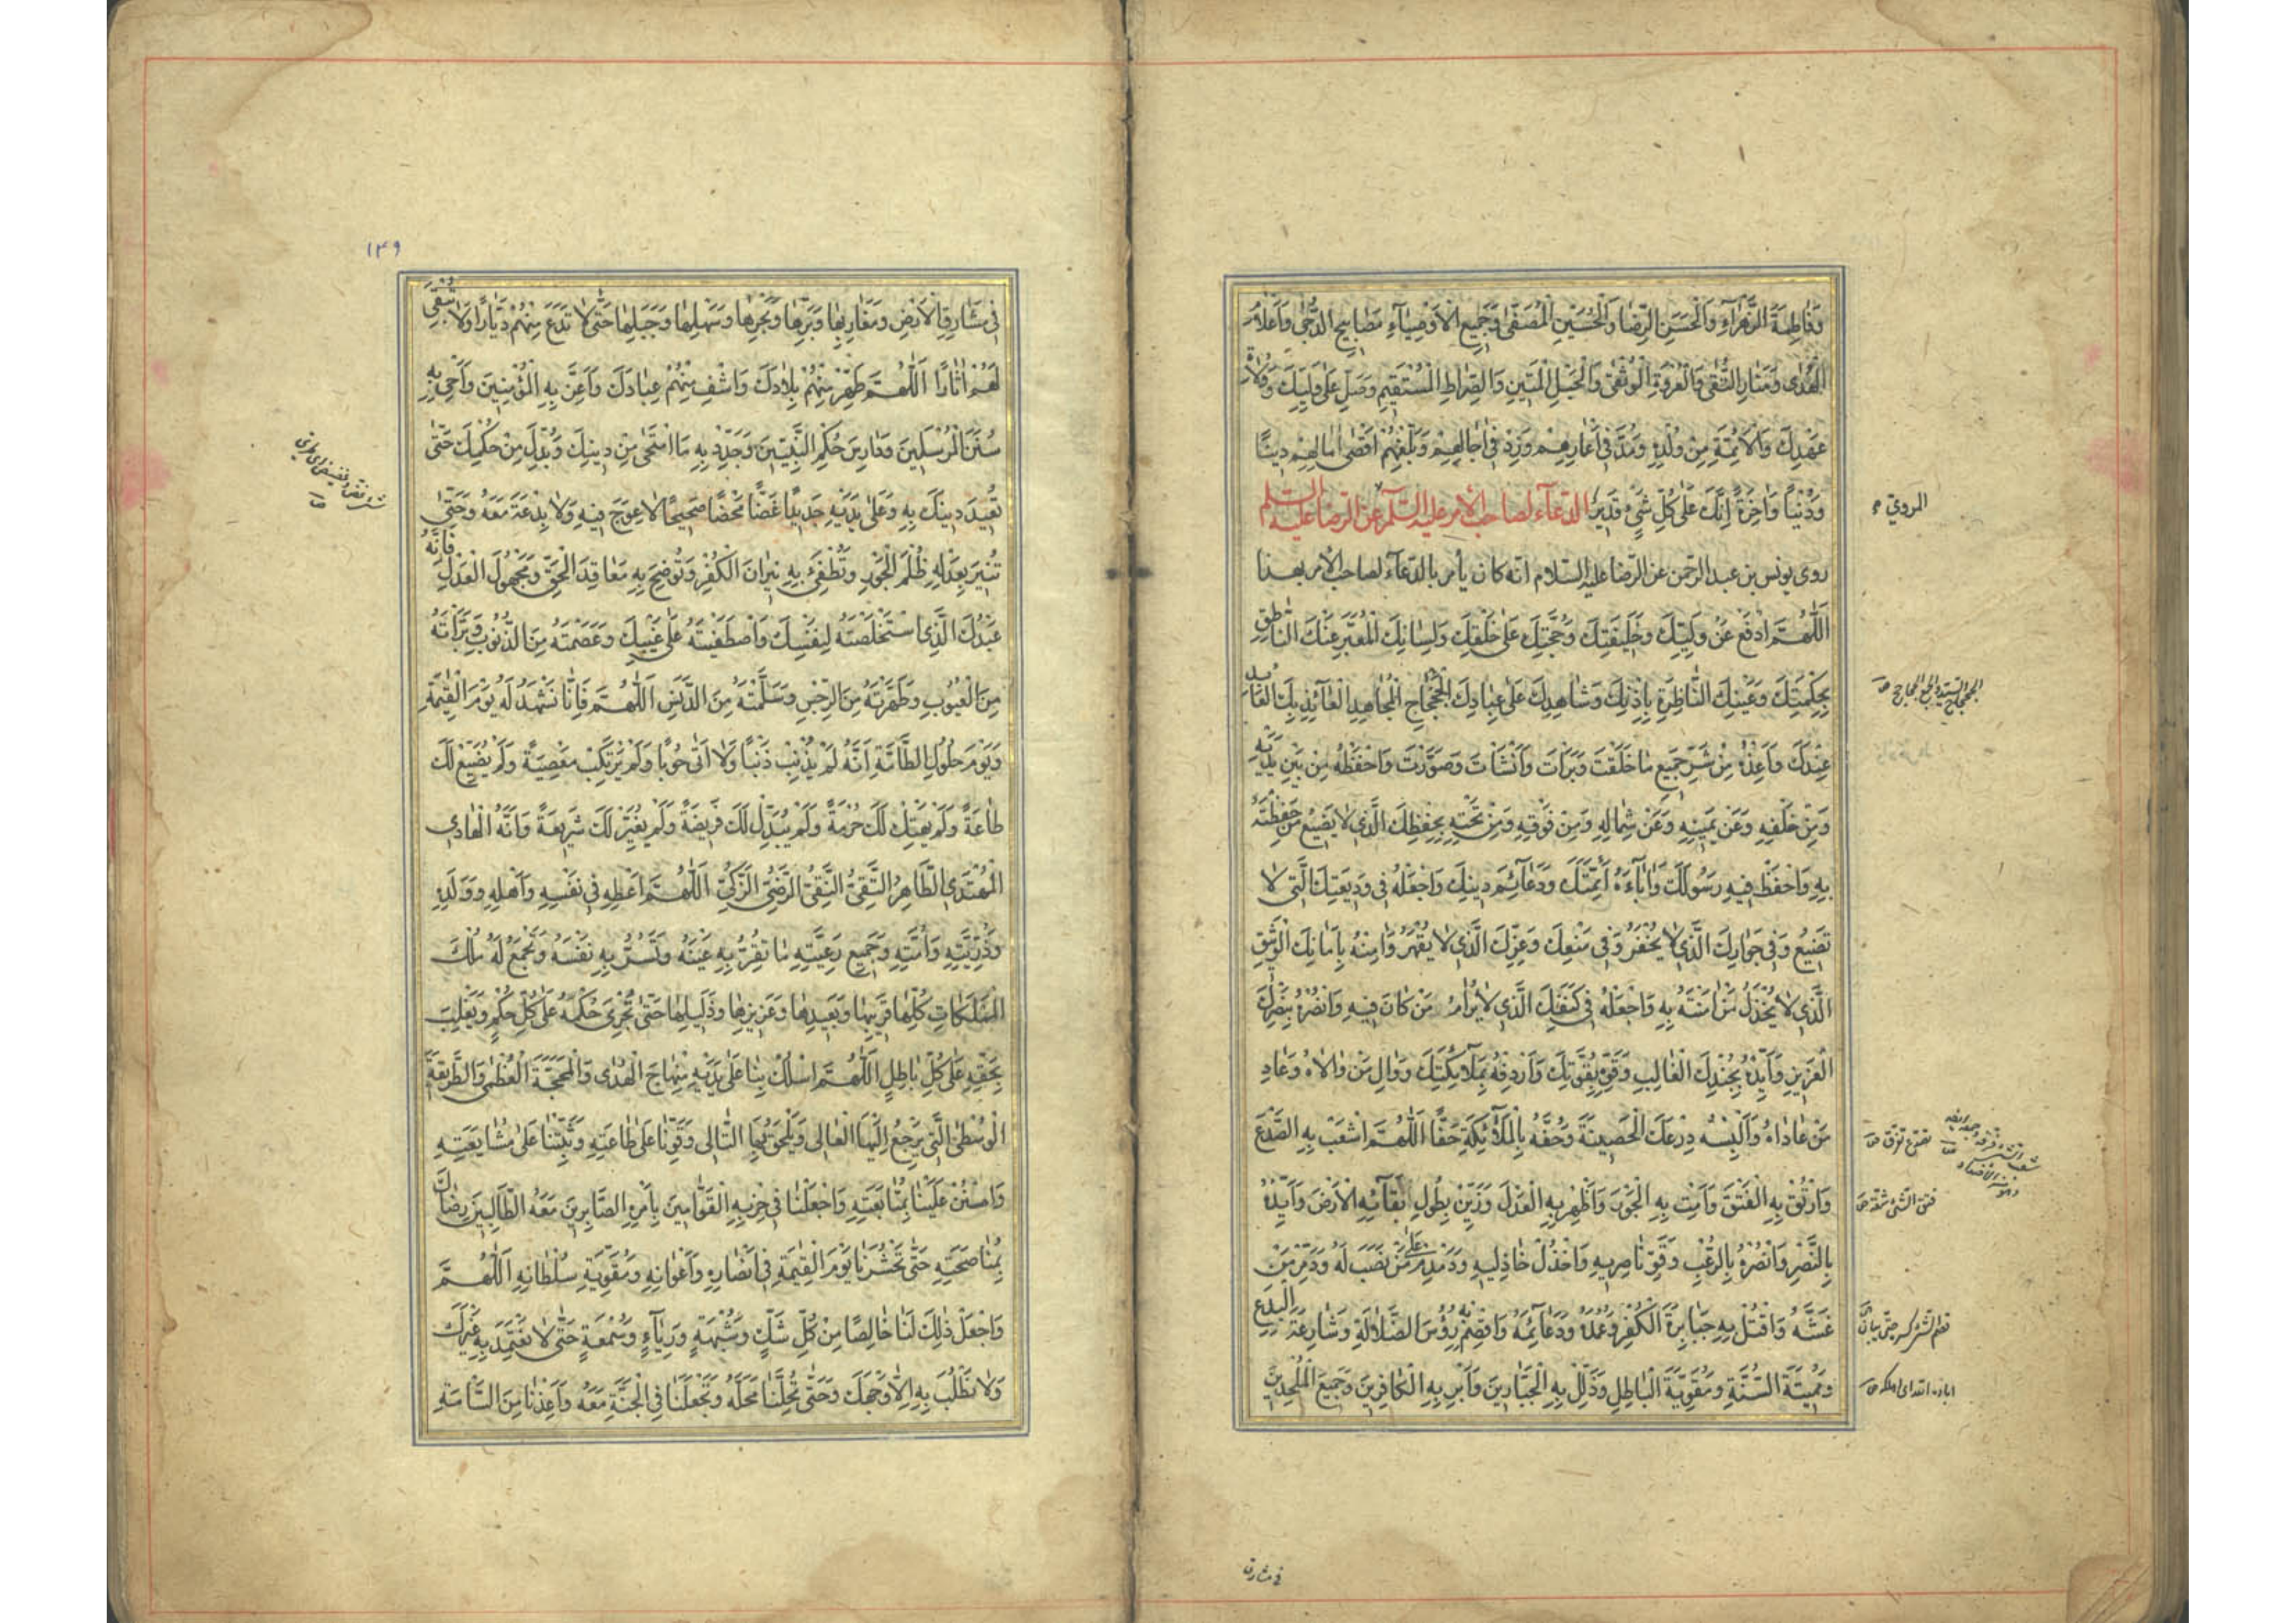 وَفَاطِمَةَ الزَّهْرَآءِ وَالْحَسَنِ الرِّضَا وَالْحُسَيْنِ الْمُصَفّٰى وَجَمِيعِ الْاَوْصِيَآءِ مَصَابِيحِ الدُّجٰى وَاَعْلَامِ
الْهُدٰى وَمَنَارِ التُّقٰى وَالْعُرْوَةِ الْوُثْقٰى وَالْحَبْلِ الْمَتِينِ وَالصِّرَاطِ الْمُسْتَقِيمِ وَصَلِّ عَلٰى وَلِيِّكَ وَوُلَاةِ
عَهْدِكَ وَالْاَئِمَّةِ مِنْ وُلْدِهِ وَمُدَّ فِي اَعْمَارِهِمْ وَزِدْ فِي اٰجَالِهِمْ وَبَلِّغْهُمْ اَقْصٰى اٰمَالِهِمْ دِينًا
وَدُنْيَا وَاٰخِرَةً اِنَّكَ عَلٰى كُلِّ شَيْءٍ قَدِيرٌ الدعآء لصاحب الأمر عليه السلام عن الرضا عليه السلم
المروي
روى يونس بن عبد الرحمن عن الرضا عليه السلام انه كان يأمر بالدعآء لصاحب الأمر بهذا
اَللّٰهُمَّ ادْفَعْ عَنْ وَلِيِّكَ وَخَلِيفَتِكَ وَحُجَّتِكَ عَلٰى خَلْقِكَ وَلِسَانِكَ الْمُعَبِّرِ عَنْكَ النَّاطِقِ
بِحِكْمَتِكَ وَعَيْنِكَ النَّاظِرَةِ بِاِذْنِكَ وَشَاهِدِكَ عَلٰى عِبَادِكَ الْجَحْجَاحِ الْمُجَاهِدِ الْعَآئِذِ بِكَ الْعَابِدِ
عِنْدَكَ وَاَعِذْهُ مِنْ شَرِّ جَمِيعِ مَا خَلَقْتَ وَبَرَأْتَ وَاَنْشَأْتَ وَصَوَّرْتَ وَاحْفَظْهُ مِنْ بَيْنِ يَدَيْهِ
وَمِنْ خَلْفِهِ وَعَنْ يَمِينِهِ وَعَنْ شِمَالِهِ وَمِنْ فَوْقِهِ وَمِنْ تَحْتِهِ بِحِفْظِكَ الَّذِي لَا يَضِيعُ مَنْ حَفِظْتَهُ
بِهِ وَاحْفَظْ فِيهِ رَسُولَكَ وَاٰبَآءَهُ اَئِمَّتَكَ وَدَعَآئِمَ دِينِكَ وَاجْعَلْهُ فِي وَدِيعَتِكَ الَّتِي لَا
تَضِيعُ وَفِي جِوَارِكَ الَّذِي لَا يُخْفَرُ وَفِي مَنْعِكَ وَعِزِّكَ الَّذِي لَا يُقْهَرُ وَاٰمِنْهُ بِاَمَانِكَ الْوَثِيقِ
الَّذِي لَا يُخْذَلُ مَنْ اٰمَنْتَهُ بِهِ وَاجْعَلْهُ فِي كَنَفِكَ الَّذِي لَا يُرَامُ مَنْ كَانَ فِيهِ وَانْصُرْهُ بِنَصْرِكَ
الْعَزِيزِ وَاَيِّدْهُ بِجُنْدِكَ الْغَالِبِ وَقَوِّهِ بِقُوَّتِكَ وَاَرْدِفْهُ بِمَلَآئِكَتِكَ وَوَالِ مَنْ وَالَاهُ وَعَادِ
مَنْ عَادَاهُ وَاَلْبِسْهُ دِرْعَكَ الْحَصِينَةَ وَحُفَّهُ بِالْمَلَآئِكَةِ حَفًّا اَللّٰهُمَّ اشْعَبْ بِهِ الصَّدْعَ
وَارْتُقْ بِهِ الْفَتْقَ وَاَمِتْ بِهِ الْجَوْرَ وَاَظْهِرْ بِهِ الْعَدْلَ وَزَيِّنْ بِطُولِ بَقَآئِهِ الْاَرْضَ وَاَيِّدْهُ
بِالنَّصْرِ وَانْصُرْهُ بِالرُّعْبِ وَقَوِّ نَاصِرِيهِ وَاخْذُلْ خَاذِلِيهِ وَدَمْدِمْ عَلٰى مَنْ نَصَبَ لَهُ وَدَمِّرْ مَنْ
غَشَّهُ وَاقْتُلْ بِهِ جَبَابِرَةَ الْكُفْرِ وَعُمُدَهُ وَدَعَآئِمَهُ وَاقْصِمْ بِهِ رُؤُسَ الضَّلَالَةِ وَشَارِعَةَ الْبِدَعِ
وَمُمِيتَةَ السُّنَّةِ وَمُقَوِّيَةَ الْبَاطِلِ وَذَلِّلْ بِهِ الْجَبَّارِينَ وَاَبِرْ بِهِ الْكَافِرِينَ وَجَمِيعَ الْمُلْحِدِينَ
في مشارق
۱۴۹
فِي مَشَارِقِ الْاَرْضِ وَمَغَارِبِهَا وَبَرِّهَا وَبَحْرِهَا وَسَهْلِهَا وَجَبَلِهَا حَتّٰى لَا تَدَعَ مِنْهُمْ دَيَّارًا وَلَا تُبْقِيَ
لَهُمْ اٰثَارًا اَللّٰهُمَّ طَهِّرْ مِنْهُمْ بِلَادَكَ وَاشْفِ مِنْهُمْ عِبَادَكَ وَاَعِزَّ بِهِ الْمُؤْمِنِينَ وَاَحْيِ بِهِ
سُنَنَ الْمُرْسَلِينَ وَدَارِسَ حُكْمِ النَّبِيِّينَ وَجَدِّدْ بِهِ مَا امْتَحٰى مِنْ دِينِكَ وَبُدِّلَ مِنْ حُكْمِكَ حَتّٰى
تُعِيدَ دِينَكَ بِهِ وَعَلٰى يَدَيْهِ جَدِيدًا غَضًّا مَحْضًا صَحِيحًا لَا عِوَجَ فِيهِ وَلَا بِدْعَةَ مَعَهُ وَحَتّٰى
تُنِيرَ بِعَدْلِهِ ظُلَمَ الْجَوْرِ وَتُطْفِئَ بِهِ نِيرَانَ الْكُفْرِ وَتُوضِحَ بِهِ مَعَاقِدَ الْحَقِّ وَمَجْهُولَ الْعَدْلِ فَاِنَّهُ
عَبْدُكَ الَّذِي اسْتَخْلَصْتَهُ لِنَفْسِكَ وَاصْطَفَيْتَهُ عَلٰى غَيْبِكَ وَعَصَمْتَهُ مِنَ الذُّنُوبِ وَبَرَّأْتَهُ
مِنَ الْعُيُوبِ وَطَهَّرْتَهُ مِنَ الرِّجْسِ وَسَلَّمْتَهُ مِنَ الدَّنَسِ اَللّٰهُمَّ فَاِنَّا نَشْهَدُ لَهُ يَوْمَ الْقِيٰمَةِ
وَيَوْمَ حُلُولِ الطَّآمَّةِ اَنَّهُ لَمْ يُذْنِبْ ذَنْبًا وَلَا اَتٰى حُوبًا وَلَمْ يَرْتَكِبْ مَعْصِيَةً وَلَمْ يُضَيِّعْ لَكَ
طَاعَةً وَلَمْ يَهْتِكْ لَكَ حُرْمَةً وَلَمْ يُبَدِّلْ لَكَ فَرِيضَةً وَلَمْ يُغَيِّرْ لَكَ شَرِيعَةً وَاَنَّهُ الْهَادِي
الْمُهْتَدِي الطَّاهِرُ التَّقِيُّ النَّقِيُّ الرَّضِيُّ الزَّكِيُّ اَللّٰهُمَّ اَعْطِهِ فِي نَفْسِهِ وَاَهْلِهِ وَوَلَدِهِ
وَذُرِّيَّتِهِ وَاُمَّتِهِ وَجَمِيعِ رَعِيَّتِهِ مَا تُقِرُّ بِهِ عَيْنَهُ وَتَسُرُّ بِهِ نَفْسَهُ وَتَجْمَعُ لَهُ مُلْكَ
الْمَمْلَكَاتِ كُلِّهَا قَرِيبِهَا وَبَعِيدِهَا وَعَزِيزِهَا وَذَلِيلِهَا حَتّٰى تُجْرِيَ حُكْمَهُ عَلٰى كُلِّ حُكْمٍ وَيَغْلِبَ
بِحَقِّهِ عَلٰى كُلِّ بَاطِلٍ اَللّٰهُمَّ اسْلُكْ بِنَا عَلٰى يَدَيْهِ مِنْهَاجَ الْهُدٰى وَالْمَحَجَّةَ الْعُظْمٰى وَالطَّرِيقَةَ
الْوُسْطٰى الَّتِي يَرْجِعُ اِلَيْهَا الْغَالِي وَيَلْحَقُ بِهَا التَّالِي وَقَوِّنَا عَلٰى طَاعَتِهِ وَثَبِّتْنَا عَلٰى مُشَايَعَتِهِ
وَامْنُنْ عَلَيْنَا بِمُتَابَعَتِهِ وَاجْعَلْنَا فِي حِزْبِهِ الْقَوَّامِينَ بِاَمْرِهِ الصَّابِرِينَ مَعَهُ الطَّالِبِينَ رِضَاكَ
بِمُنَاصَحَتِهِ حَتّٰى تَحْشُرَنَا يَوْمَ الْقِيٰمَةِ فِي اَنْصَارِهِ وَاَعْوَانِهِ وَمُقَوِّيَةِ سُلْطَانِهِ اَللّٰهُمَّ
وَاجْعَلْ ذٰلِكَ لَنَا خَالِصًا مِنْ كُلِّ شَكٍّ وَشُبْهَةٍ وَرِيَآءٍ وَسُمْعَةٍ حَتّٰى لَا نَعْتَمِدَ بِهِ غَيْرَكَ
وَلَا نَطْلُبَ بِهِ اِلَّا وَجْهَكَ وَحَتّٰى تُحِلَّنَا مَحَلَّهُ وَتَجْعَلَنَا فِي الْجَنَّةِ مَعَهُ وَاَعِذْنَا مِنَ السَّاْمَةِ